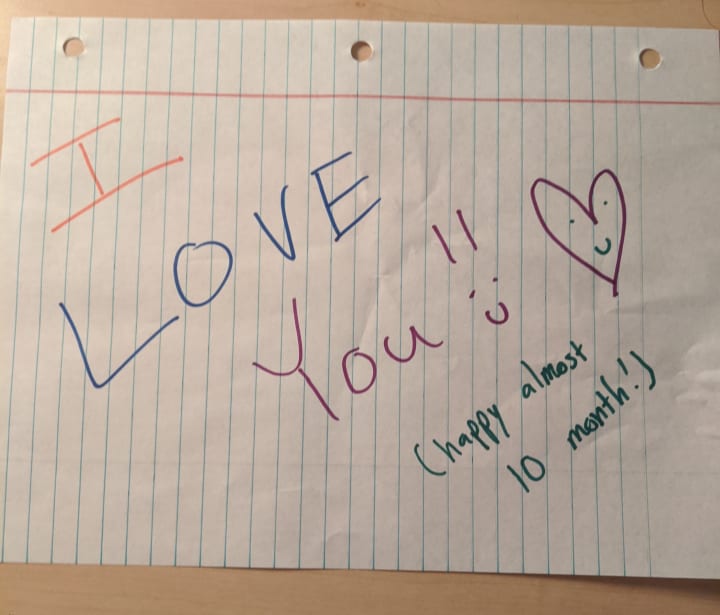 I
LOVE
You!!
(happy almost
10 month!)